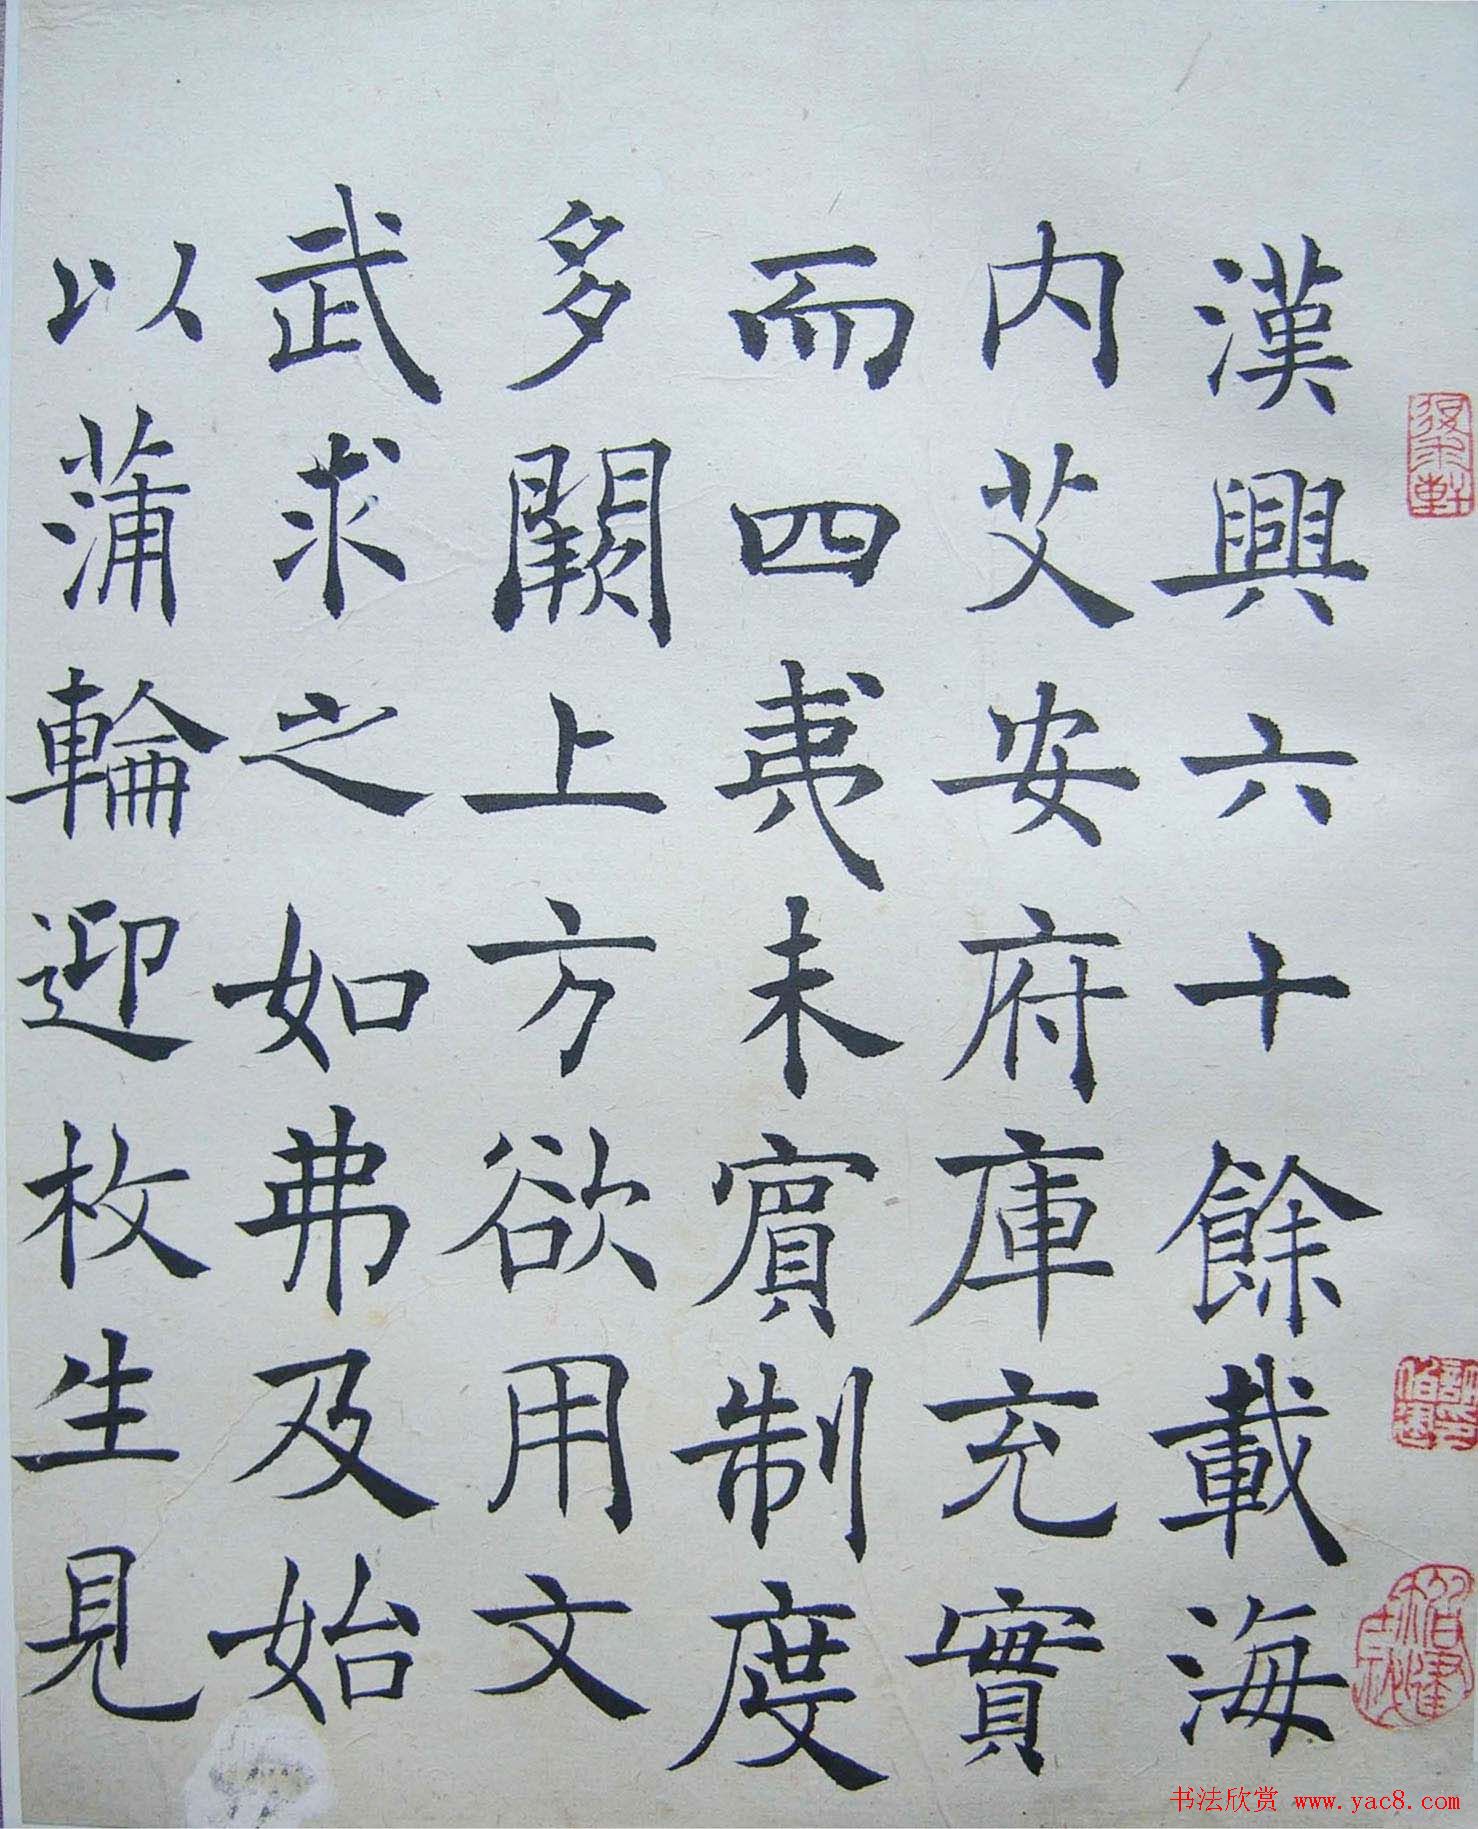 漢興六十餘載海
内艾安府庫充實
而四夷未賓制度
多闕上方欲用文
武求之如弗及始
以蒲輪迎枚生見
书法欣赏 www.yac8.com